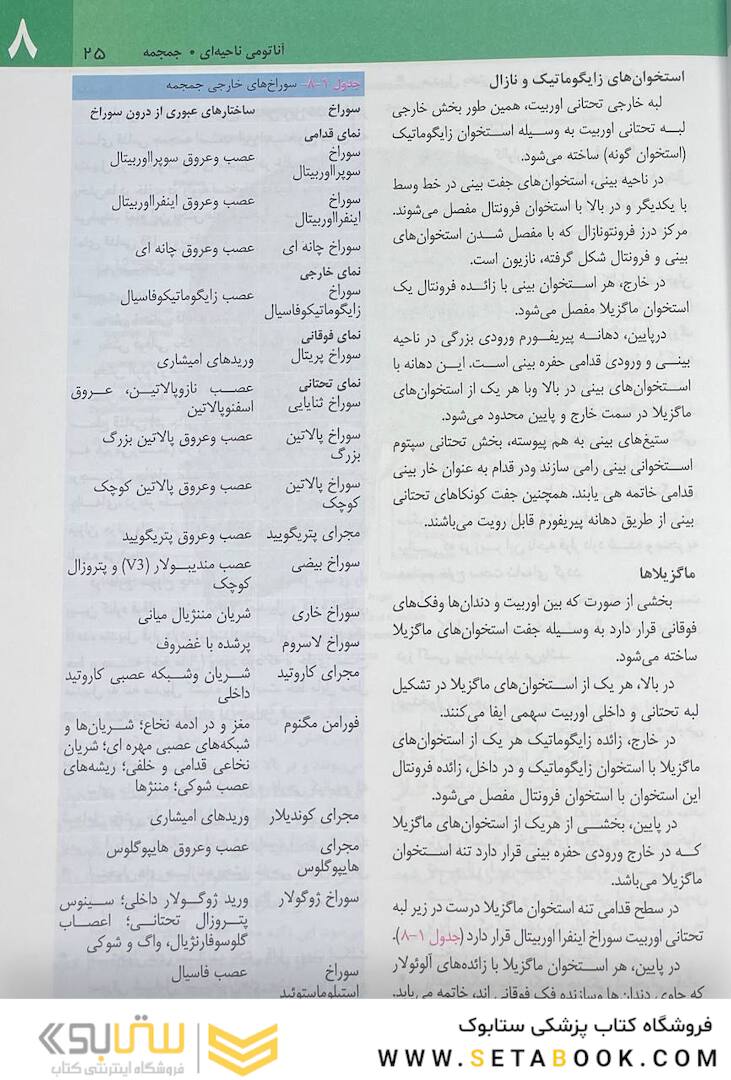 ۸
آناتومی ناحیه‌ای • جمجمه ۲۵
استخوان‌های زایگوماتیک و نازال
لبه خارجی تحتانی اوربیت، همین طور بخش خارجی
لبــه تحتانی اوربیت به وسیله استخوان زایگوماتیک
(استخوان گونه) ساخته می‌شود.
در ناحیه بینی، استخوان‌های جفت بینی در خط وسط
با یکدیگر و در بالا با استخوان فرونتال مفصل می‌شوند.
مرکز درز فرونتونازال که با مفصل شدن استخوان‌های
بینی و فرونتال شکل گرفته، نازیون است.
در خارج، هر استخوان بینی با زائده فرونتال یک
استخوان ماگزیلا مفصل می‌شود.
درپایین، دهانه پیریفورم ورودی بزرگی در ناحیه
بینی و ورودی قدامی حفره بینی است. این دهانه با
استخوان‌های بینی در بالا وبا هر یک از استخوان‌های
ماگزیلا در سمت خارج و پایین محدود می‌شود.
ستیغ‌های بینی به هم پیوسته، بخش تحتانی سپتوم
استخوانی بینی رامی سازند ودر قدام به عنوان خار بینی
قدامی خاتمه هی یابند. همچنین جفت کونکاهای تحتانی
بینی از طریق دهانه پیریفورم قابل رویت می‌باشند.
ماگزیلاها
بخشی از صورت که بین اوربیت و دندان‌ها وفک‌های
فوقانی قرار دارد به وسیله جفت استخوان‌های ماگزیلا
ساخته می‌شود.
در بالا، هر یک از استخوان‌های ماگزیلا در تشکیل
لبه تحتانی و داخلی اوربیت سهمی ایفا می‌کنند.
در خارج، زائده زایگوماتیک هر یک از استخوان‌های
ماگزیلا با استخوان زایگوماتیک و در داخل، زائده فرونتال
این استخوان با استخوان فرونتال مفصل می‌شود.
در پایین، بخشی از هریک از استخوان‌های ماگزیلا
کــه در خارج ورودی حفره بینی قرار دارد تنه استخوان
ماگزیلا می‌باشد.
در سطح قدامی تنه استخوان ماگزیلا درست در زیر لبه
تحتانی اوربیت سوراخ اینفرا اوربیتال قرار دارد (جدول ۱-۸).
در پایین، هر استخوان ماگزیلا با زائده‌های آلوئولار
که حاوی دندان‌ها وسازنده فک فوقانی اند، خاتمه می‌یابد.
جدول ۱-۸- سوراخ‌های خارجی جمجمه
سوراخ ساختارهای عبوری از درون سوراخ
نمای قدامی
سوراخ عصب وعروق سوپرااوربیتال
سوپرااوربیتال
سوراخ عصب وعروق اینفرااوربیتال
اینفرااوربیتال
سوراخ چانه ای عصب وعروق چانه ای
نمای خارجی
سوراخ عصب زایگوماتیکوفاسیال
زایگوماتیکوفاسیال
نمای فوقانی
سوراخ پریتال وریدهای امیشاری
نمای تحتانی عصب نازوپالاتین، عروق
سوراخ ثنایایی اسفنوپالاتین
سوراخ پالاتین عصب وعروق پالاتین بزرگ
بزرگ
سوراخ پالاتین عصب وعروق پالاتین کوچک
کوچک
مجرای پتریگویید عصب وعروق پتریگویید
سوراخ بیضی عصب مندیبولار (V3) و پتروزال
کوچک
سوراخ خاری شریان مننژیال میانی
سوراخ لاسروم پرشده با غضروف
مجرای کاروتید شریان وشبکه عصبی کاروتید
داخلی
فورامن مگنوم مغز و در ادمه نخاع؛ شریان‌ها و
شبکه‌های عصبی مهره ای؛ شریان
نخاعی قدامی و خلفی؛ ریشه‌های
عصب شوکی؛ مننژها
مجرای کوندیلار وریدهای امیشاری
مجرای عصب وعروق هایپوگلوس
هایپوگلوس
سوراخ ژوگولار ورید ژوگولار داخلی؛ سینوس
پتروزال تحتانی؛ اعصاب
گلوسوفارنژیال، واگ و شوکی
سوراخ عصب فاسیال
استیلوماستوئید
فروشگاه کتاب پزشکی ستابوک
WWW.SETABOOK.COM
ستابوک
فروشگاه اینترنتی کتاب